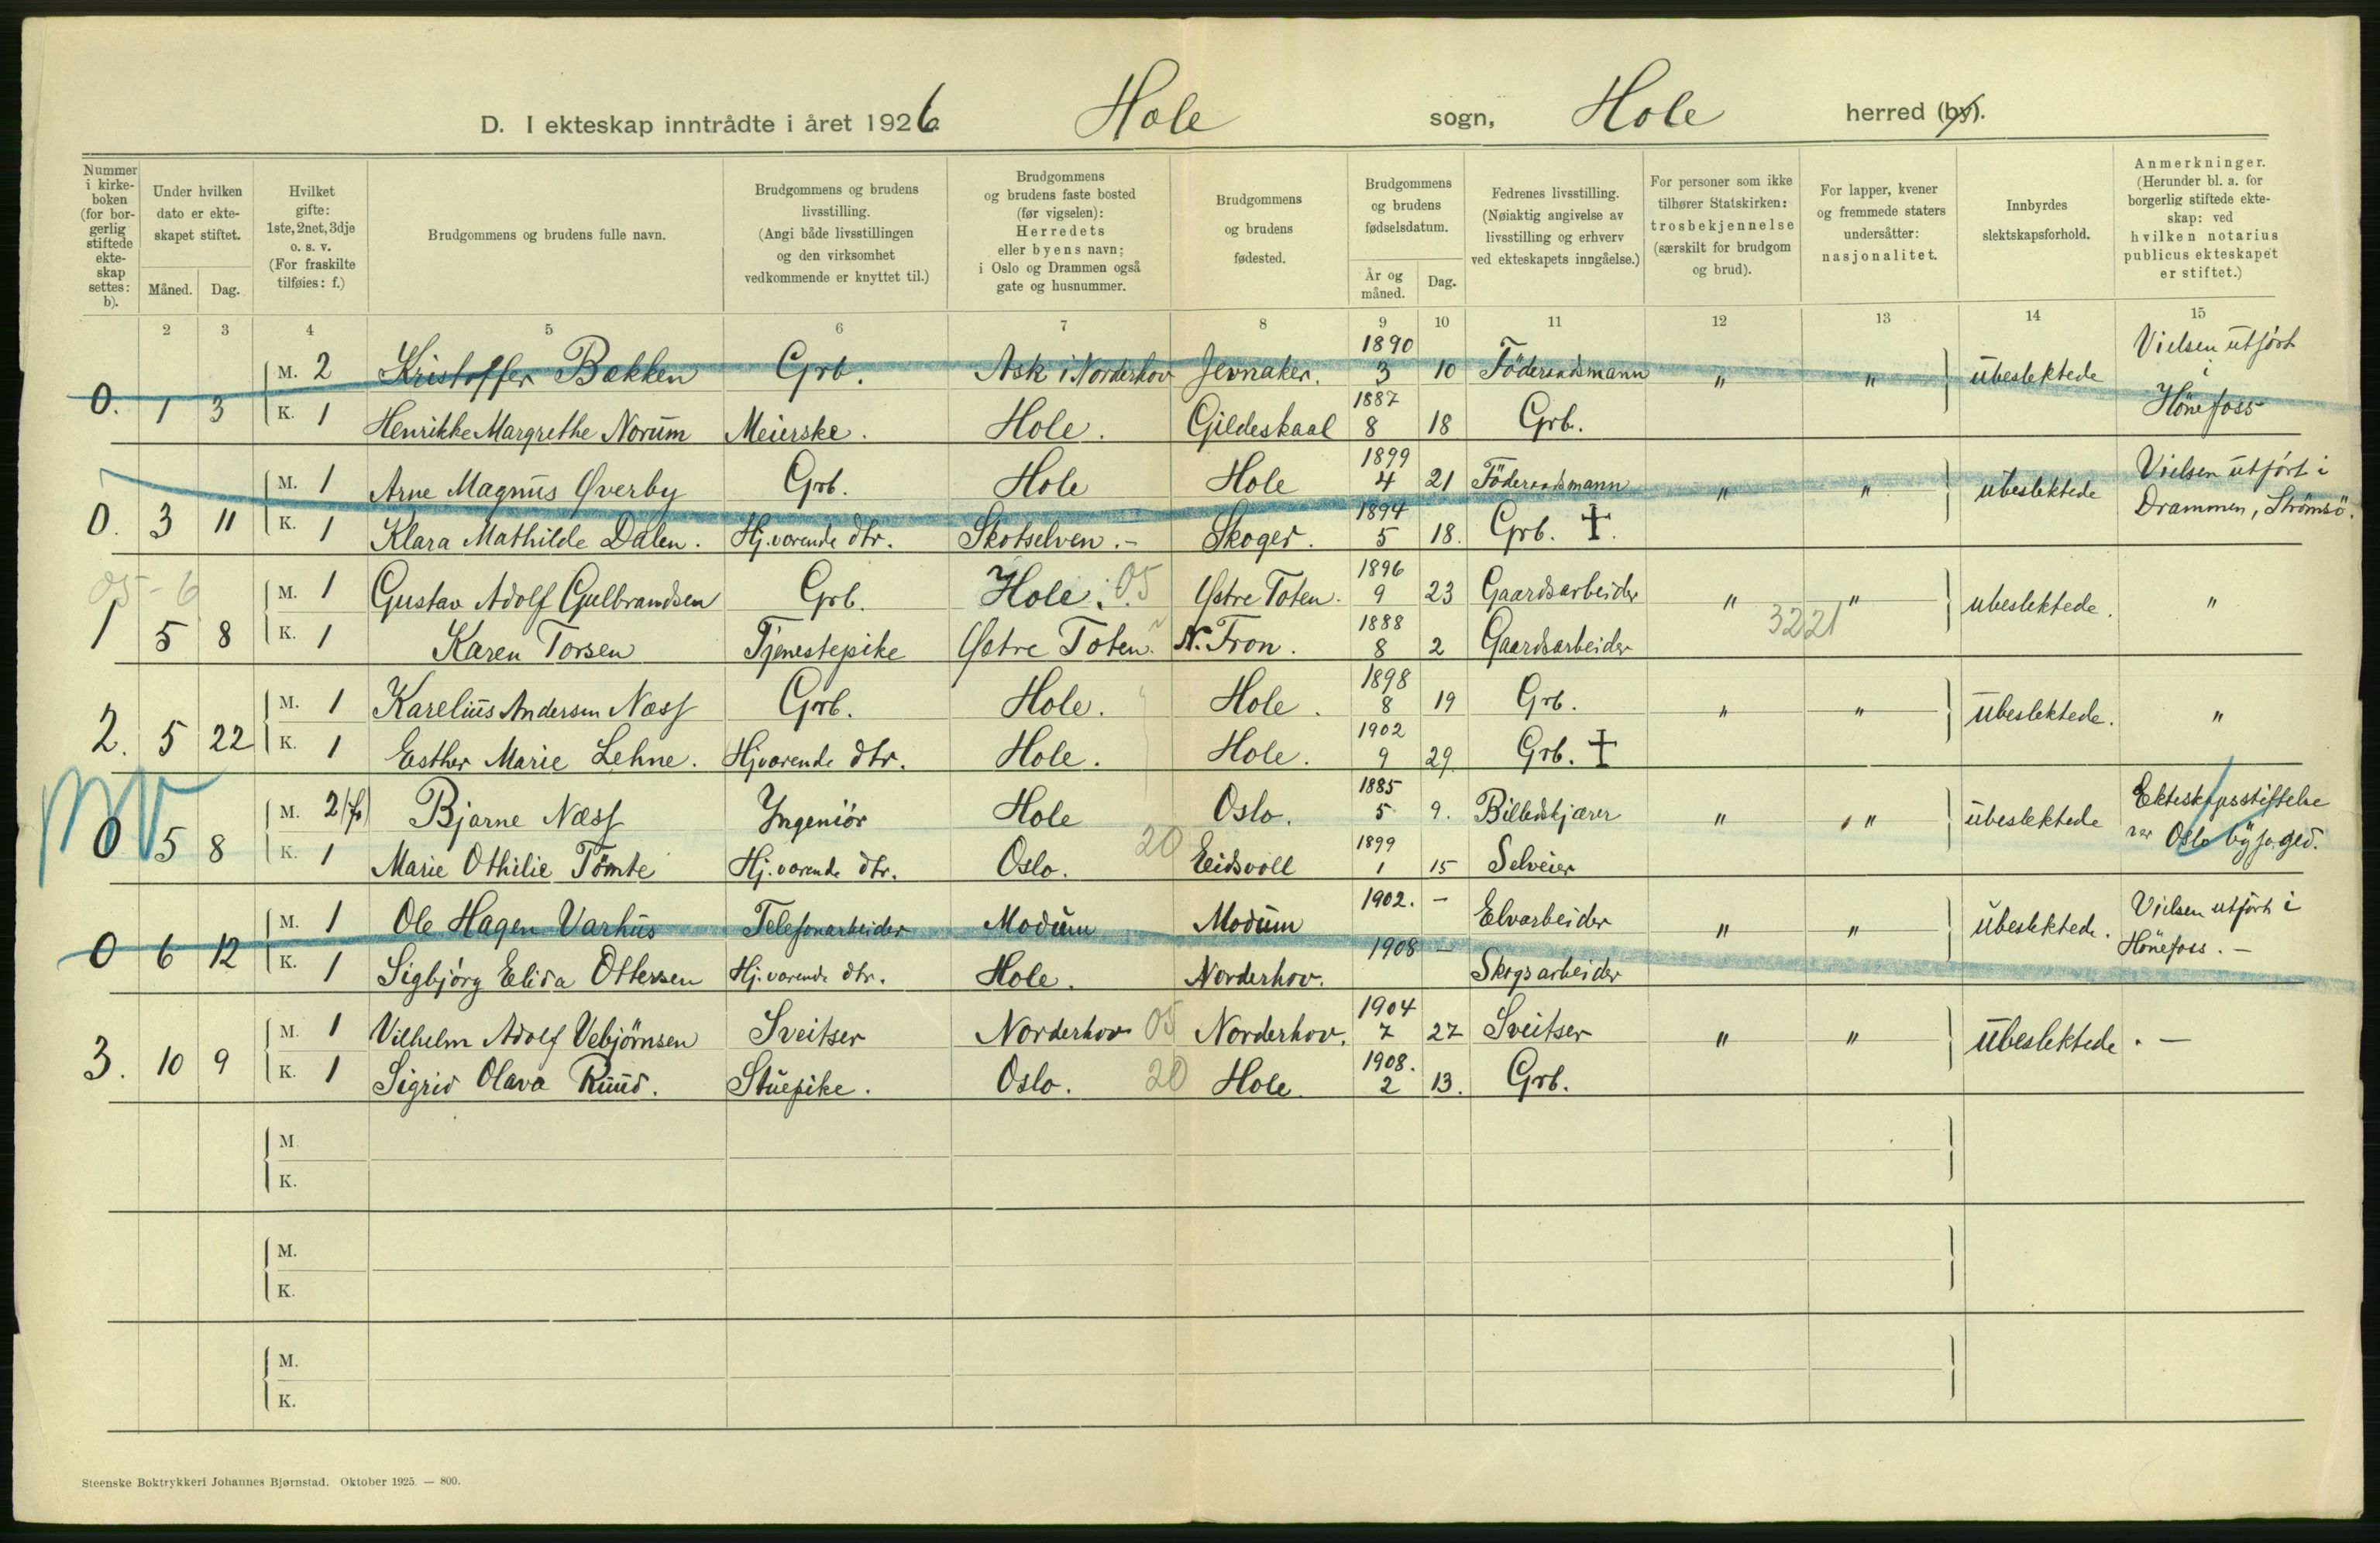 D. I ekteskap inntrådte i året 1926. Hole sogn, Hole herred (by).
Nummer i kirkeboken (for borgerlig stiftede ekteskap settes: b).
Under hvilken dato er ekteskapet stiftet.
Måned. Dag.
Hvilket gifte: 1ste, 2net, 3dje o. s. v. (For fraskilte tilføies: f.)
Brudgommens og brudens fulle navn.
Brudgommens og brudens livsstilling. (Angi både livsstillingen og den virksomhet vedkommende er knyttet til.)
Brudgommens og brudens faste bosted (før vigselen): Herredets eller byens navn; i Oslo og Drammen også gate og husnummer.
Brudgommens og brudens fødested.
Brudgommens og brudens fødselsdatum.
År og måned. Dag.
Fedrenes livsstilling. (Nøiaktig angivelse av livsstilling og erhverv ved ekteskapets inngåelse.)
For personer som ikke tilhører Statskirken: trosbekjennelse (særskilt for brudgom og brud).
For lapper, kvener og fremmede staters undersåtter: nasjonalitet.
Innbyrdes slektskapsforhold.
Anmerkninger. (Herunder bl. a. for borgerlig stiftede ekteskap: ved hvilken notarius publicus ekteskapet er stiftet.)
2 3 4 5 6 7 8 9 10 11 12 13 14 15
M. 2 Kristoffer Bakken Grb. Ask i Norderhov Jevnaker. 1890 3 10 Föderaadsmann " " übeslektede Vielsen utført i Hönefoss
0. 1 3 K. 1 Henrikke Margrethe Norum Meierske. Hole. Gildeskaal 1887 8 18 Grb.
M. 1 Arne Magnus Øverby Grb. Hole Hole 1899 4 21 Föderaadsmann " " übeslektede Vielsen utført i Drammen, Strömsö.
0. 3 11 K. 1 Klara Mathilde Dalen. Hj.værende dtr. Skotselven.- Skoger. 1894 5 18. Grb. †.
05-6 M. 1 Gustav Adolf Gulbrandsen Grb. Hole. 05 Østre Toten. 1896 9 23 Gaardsarbeider " " ubeslektede. "
1 5 8 K. 1 Karen Torsen Tjenestepike Østre Toten. N. Fron. 1888 8 2 Gaardsarbeider 3221
M. 1 Karelius Andersen Næss Grb. Hole. Hole. 1898 8 19 Grb. " " übeslektede. "
2. 5 22 K. 1 Esther Marie Lehne. Hjværende dtr. Hole. Hole. 1902 9 29 Grb. †
M. 2(f) Bjarne Næss Ingeniör Hole Oslo. 1885 5 9. Billedskjærer " " übeslektede Ekteskapsstiftelse ver Oslo byfoged.
0 5 8 K. 1 Marie Othilie Tömte Hj.værende dtr. Oslo. 20 Eidsvoll 1899 1 15 Selveier
M. 1 Ole Hagen Varhus Telefonarbeider Modum Modum 1902. - Elvarbeider " " übeslektede. Vielsen utført i Hönefoss. -
0 6 12 K. 1 Sigbjörg Elida Ottersen Hj.værende dtr. Hole. Norderhov. 1908 - Skogsarbeider
M. 1 Vilhelm Adolf Vebjörnsen Sveitser Norderhov 05 Norderhov. 1904 7 27 Sveitser " " übeslektede. -
3. 10 9 K. 1 Sigrid Olava Ruud. Stuepike. Oslo. 20 Hole. 1908. 2 13. Grb.
M.
K.
M.
K.
M.
K.
Steenske Boktrykkeri Johannes Bjørnstad. Oktober 1925. — 800.